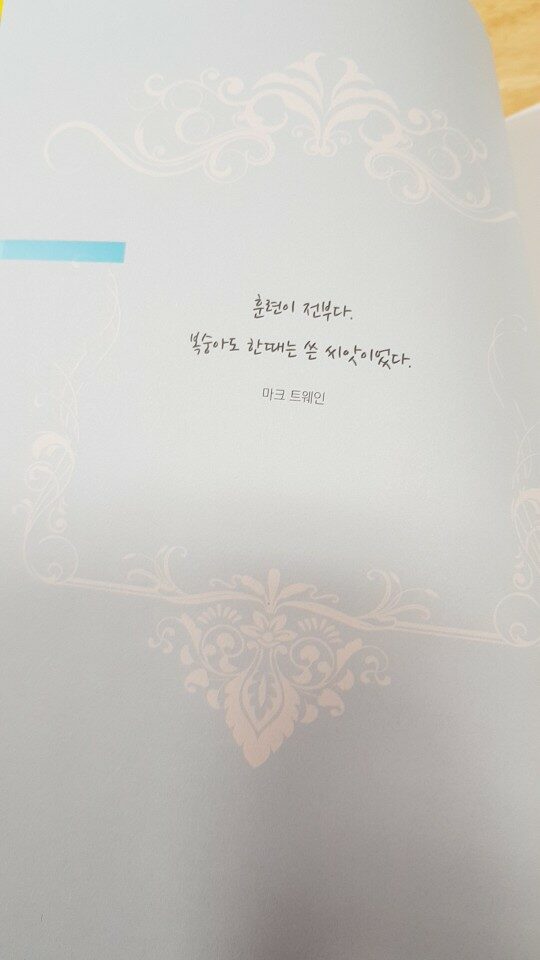 훈련이 전부다.
복숭아도 한때는 쓴 씨앗이었다.
마크 트웨인